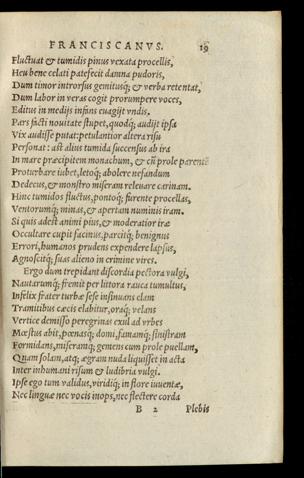 FRANCISCANVS. 19
Fluctuat & tumidis pinus vexata procellis,
Heu bene celati patefecit damna pudoris,
Dum timor introrsus gemitusq́; & verba retentat,
Dum labor in veras cogit prorumpere voces,
Editus in medijs infans euagijt vndis.
Pars facti nouitate stupet, quodq́; audijt ipsa
Vix audisse putat: petulantior altera risu
Personat: ast alius tumida succensus ab ira
In mare præcipitem monachum, & cũ prole parentẽ
Proturbare iubet, letoq́; abolere nefandum
Dedecus, & monstro miseram releuare carinam.
Hinc tumidos fluctus, pontoq́; furente procellas,
Ventorumq́; minas, & apertam numinis iram.
Si quis adest animi pius, & moderatior iræ
Occultare cupit facinus, parcitq́; benignus
Errori, humanos prudens expendere lapsus,
Agnoscitq́; suas alieno in crimine vires.
Ergo dum trepidant discordia pectora vulgi,
Nautarumq́; fremit per littora rauca tumultus,
Infelix frater turbæ sese insinuans clam
Tramitibus cæcis elabitur, oraq́; velans
Vertice demisso peregrinas exul ad vrbes
Mœstus abit, pœnasq́; domi, famamq́; sinistram
Formidans, miseramq́; gemens cum prole puellam,
Quam solam, atq; ægram nuda liquisset in acta
Inter inhumani risum & ludibria vulgi.
Ipse ego tum validus, viridiq́; in flore iuuentæ,
Nec linguæ nec vocis inops, nec flectere corda
B 2 Plebis